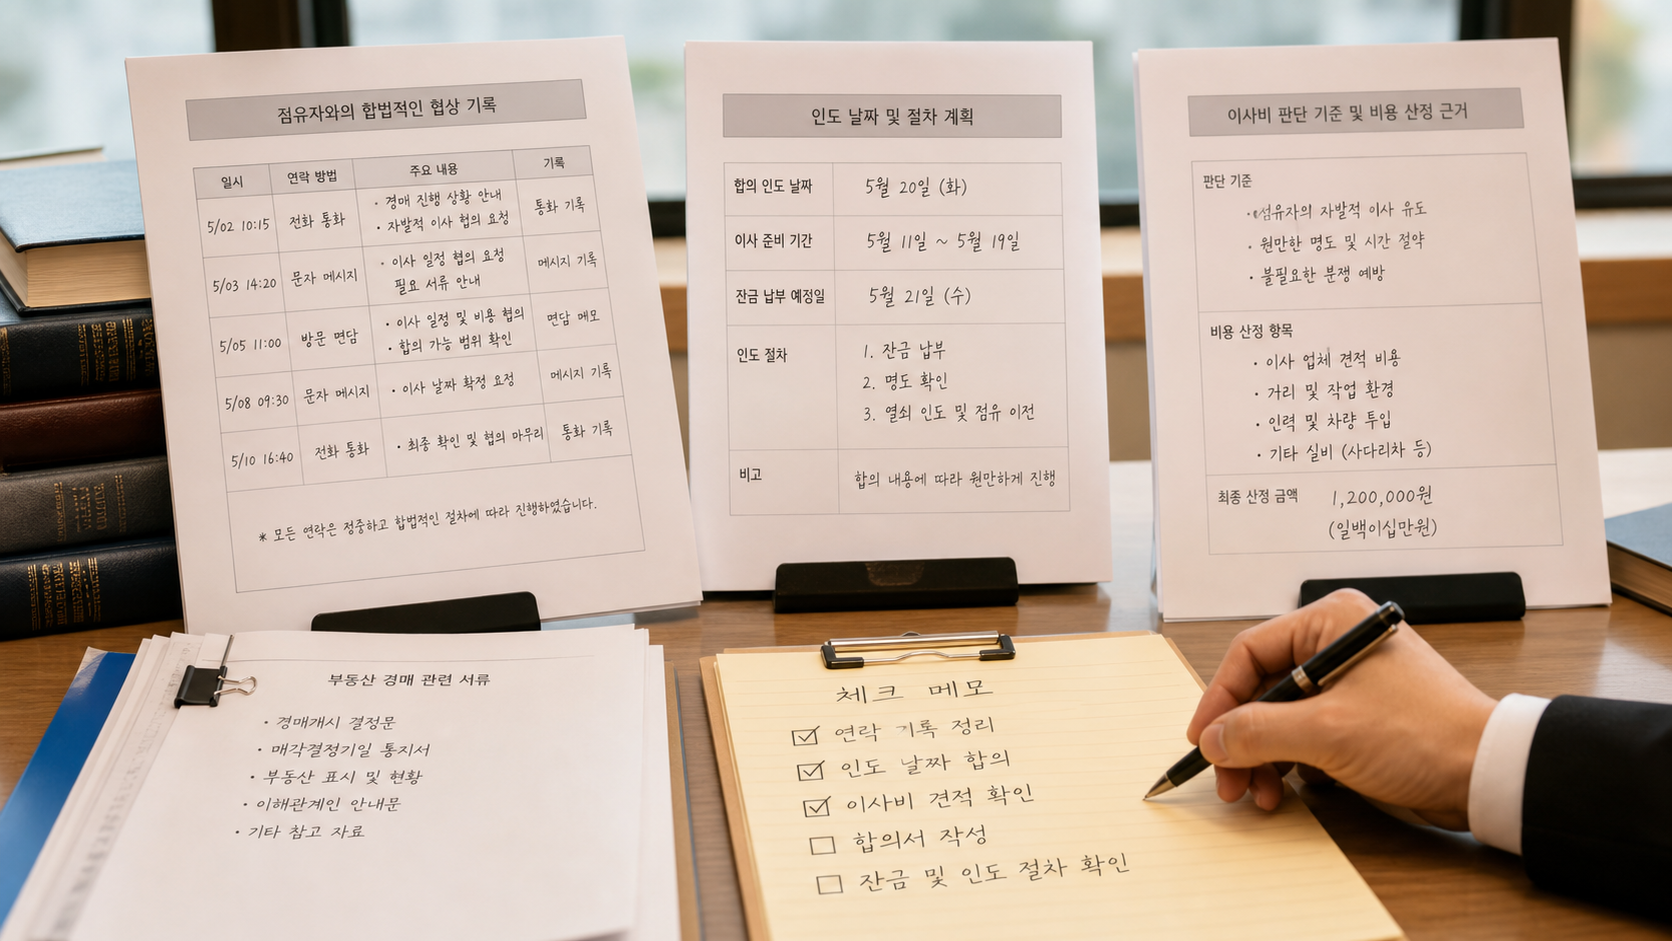 점유자와의 합법적인 협상 기록
일시 연락 방법 주요 내용 기록
5/02 10:15 전화 통화 • 경매 진행 상황 안내 통화 기록
• 자발적 이사 협의 요청
5/03 14:20 문자 메시지 • 이사 일정 협의 요청 메시지 기록
필요 서류 안내
5/05 11:00 방문 면담 • 이사 일정 및 비용 협의 면담 메모
• 합의 가능 범위 확인
5/08 09:30 문자 메시지 • 이사 날짜 확정 요청 메시지 기록
5/10 16:40 전화 통화 • 최종 확인 및 협의 마무리 통화 기록
* 모든 연락은 정중하고 합법적인 절차에 따라 진행하였습니다.
인도 날짜 및 절차 계획
합의 인도 날짜 5월 20일 (화)
이사 준비 기간 5월 11일 ~ 5월 19일
잔금 납부 예정일 5월 21일 (수)
인도 절차 1. 잔금 납부
2. 명도 확인
3. 열쇠 인도 및 점유 이전
비고 합의 내용에 따라 원만하게 진행
이사비 판단 기준 및 비용 산정 근거
판단 기준
• 점유자의 자발적 이사 유도
• 원만한 명도 및 시간 절약
• 불필요한 분쟁 예방
비용 산정 항목
• 이사 업체 견적 비용
• 거리 및 작업 환경
• 인력 및 차량 투입
• 기타 실비 (사다리차 등)
최종 산정 금액 1,200,000원
(일백이십만원)
부동산 경매 관련 서류
• 경매개시 결정문
• 매각결정기일 통지서
• 부동산 표시 및 현황
• 이해관계인 안내문
• 기타 참고 자료
체크 메모
☑ 연락 기록 정리
☑ 인도 날짜 합의
☑ 이사비 견적 확인
☐ 합의서 작성
☐ 잔금 및 인도 절차 확인